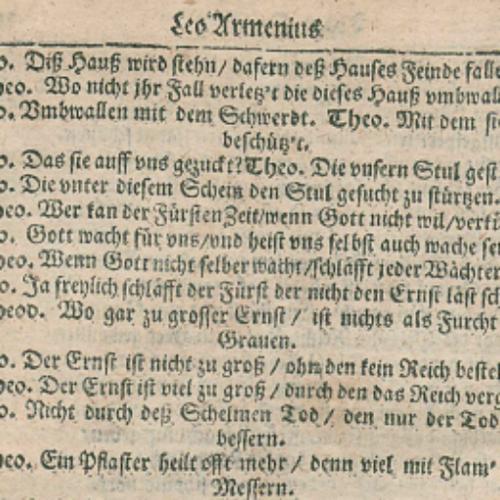 Leo Armenius
o. Diß Hauß wird stehn/ dafern deß Hauses Feinde falle
heo. Wo nicht jhr Fall verletz't die dieses Hauß vmbwall
o. Vmbwallen mit dem Schwerdt. Theo. Mit dem si
beschütz't.
o. Das sie auff vns gezuckt? Theo. Die vnsern Stul gest
o. Die vnter diesem Schein den Stul gesucht zu stürtzen.
heo. Wer kan der Fürsten Zeit/wenn Gott nicht wil/verkü
o. Gott wacht für vns/vnd heist vns selbst auch wache se
heo. Wenn Gott nicht selber wacht/schläfft jeder Wächter
o. Ja freylich schläfft der Fürst der nicht den Ernst läst sch
heod. Wo gar zu grosser Ernst/ ist nichts als Furcht
Grauen.
o. Der Ernst ist nicht zu groß / ohn den kein Reich besteh
heo. Der Ernst ist viel zu groß / durch den das Reich verg
o. Nicht durch deß Schelmen Tod / den nur der Tod
bessern.
heo. Ein Pflaster heilt offt mehr / denn viel mit Flam'
Messern.